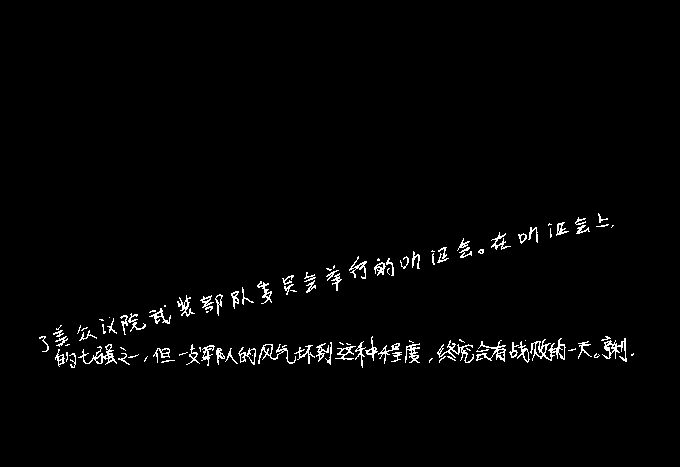 了美众议院武装部队委员会举行的听证会。在听证会上,
的七强之一,但一支军队的风气坏到这种程度,终究会有战败的一天。郭利.